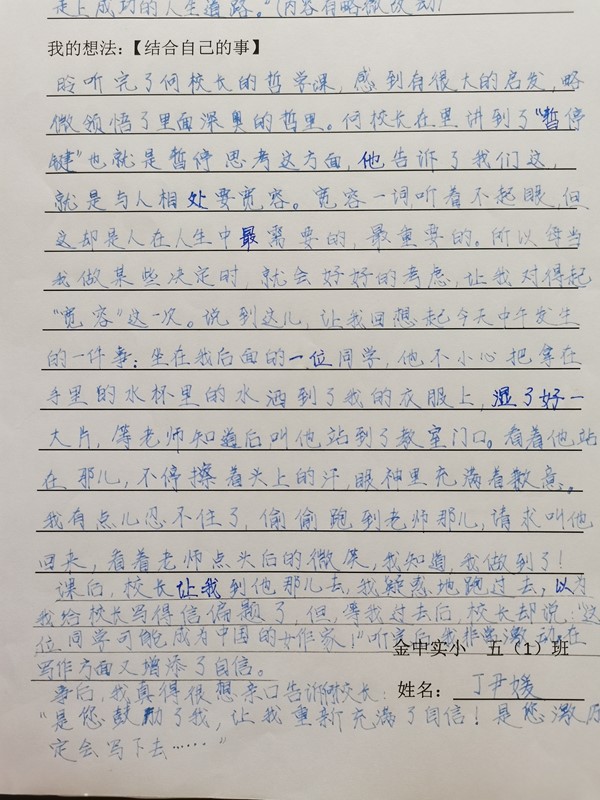 是上成功的人生道路。"(内容有略微改动)
我的想法:【结合自己的事】
聆听完了何校长的哲学课,感到有很大的启发,略
微领悟了里面深奥的哲里。何校长在里讲到了"暂停
键"也就是暂停思考这方面,他告诉了我们这,
就是与人相处要宽容。宽容一词,听着不起眼,但
这却是人在人生中最需要的,最重要的。所以每当
我做某些决定时,就会好好的考虑,让我对得起
"宽容"这一次。说到这儿,让我回想起今天中午发生
的一件事:坐在我后面的一位同学,他不小心把拿在
手里的水杯里的水洒到了我的衣服上,湿了好一
大片,等老师知道后叫他站到了教室门口。看着他站
在那儿,不停擦着头上的汗,眼神里充满着歉意。
我有点儿忍不住了,偷偷跑到老师那儿,请求叫他
回来,看着老师点头后的微笑,我知道,我做到了!
课后,校长让我到他那儿去,我疑惑地跑过去,以为
我给校长写得信偏题了,但,等我过去后,校长却说:"这
位同学可能成为中国的女作家!"听完后,我非常激动,在
写作方面又增添了自信。
金中实小 五(1)班
事后,我真得很想亲口告诉校长:
姓名:丁尹媛
"是您鼓励了我,让我重新充满了自信!是您激励
定会写下去……"